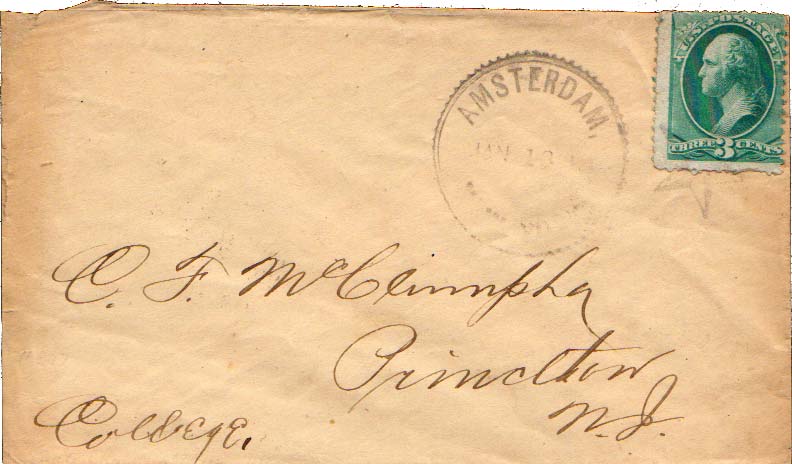 U.S. POSTAGE
THREE 3 CENTS
AMSTERDAM,
JAN 13
C. F. McClumpha
Princeton
N.J.
College.